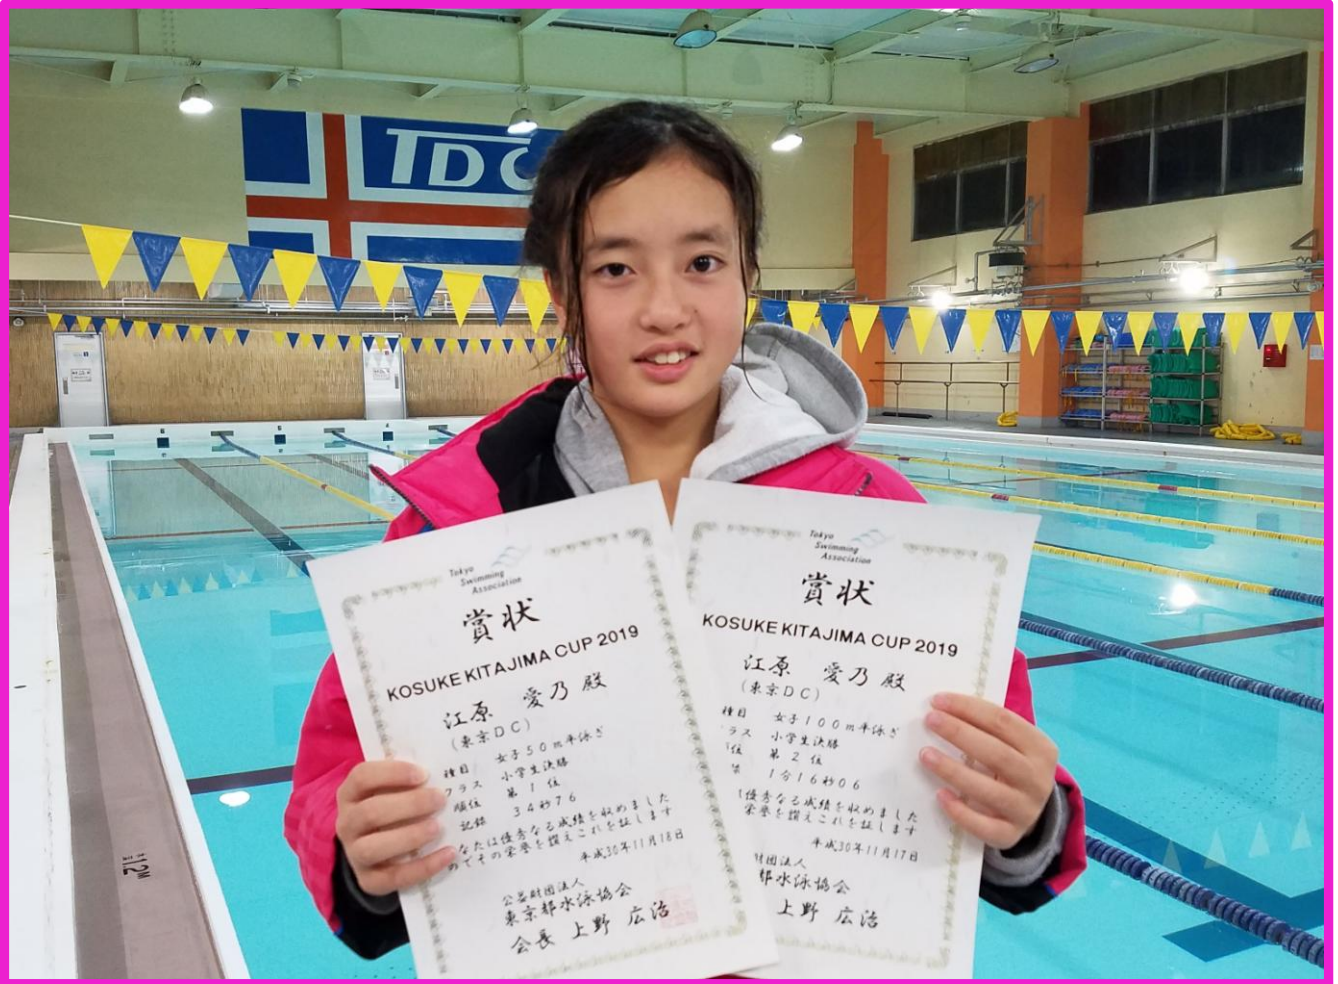 TDC
Tokyo
Swimming
Association
賞状
KOSUKE KITAJIMA CUP 2019
江原 愛乃 殿
(東京DC)
種目 女子50m平泳ぎ
クラス 小学生決勝
順位 第1位
記録 34秒76
なたは優秀なる成績を収めました
のでその栄誉を讃えこれを証します
平成30年11月18日
公益財団法人
東京都水泳協会
会長 上野 広治
Tokyo
Swimming
Association
賞状
KOSUKE KITAJIMA CUP 2019
江原 愛乃 殿
(東京DC)
種目 女子100m平泳ぎ
ラス 小学生決勝
位 第2位
1分16秒06
優秀なる成績を収めました
栄誉を讃えこれを証します
平成30年11月17日
財団法人
都水泳協会
上野 広治
12M